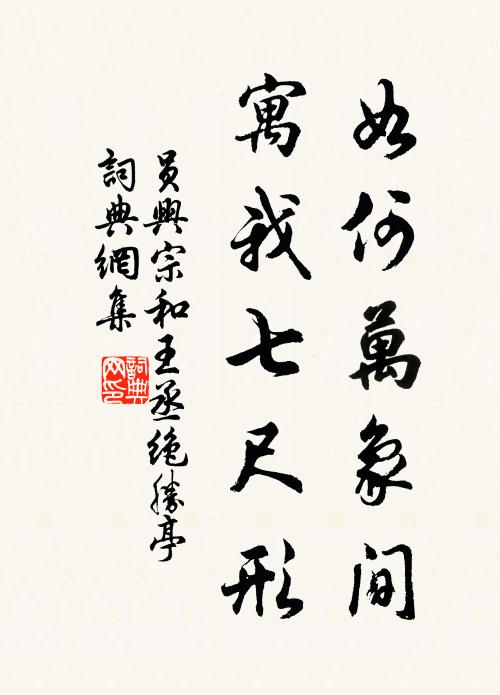 如何萬象間
寓我七尺形
員興宗和王丞絶勝亭
詞典網集
詞典網印